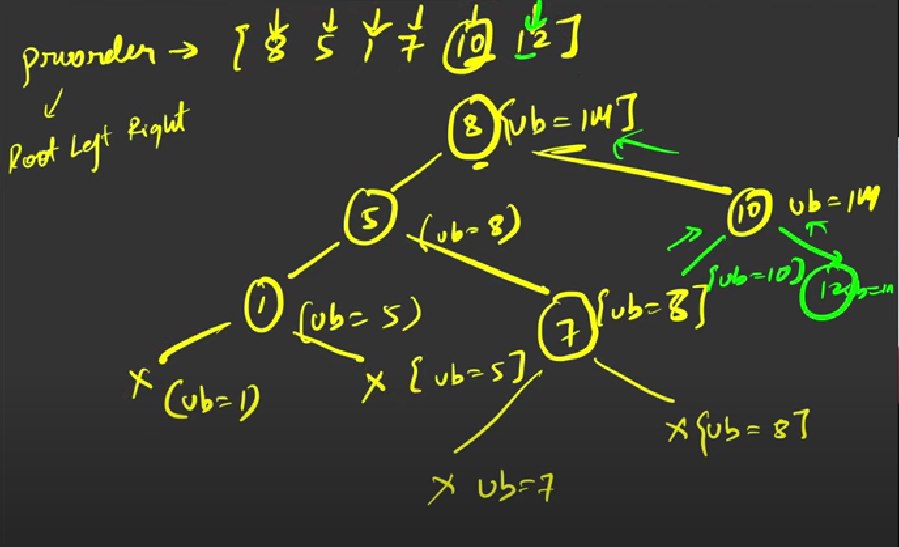 preorder → [ 8 5 1 7 10 12 ]
Root Left Right
8 [ub = IM]
5 (ub = 8)
10 ub = IM
1 (ub = 5)
7 [ub = 8]
[ub = 10]
12
x (ub = 1)
x [ub = 5]
x [ub = 8]
x ub = 7